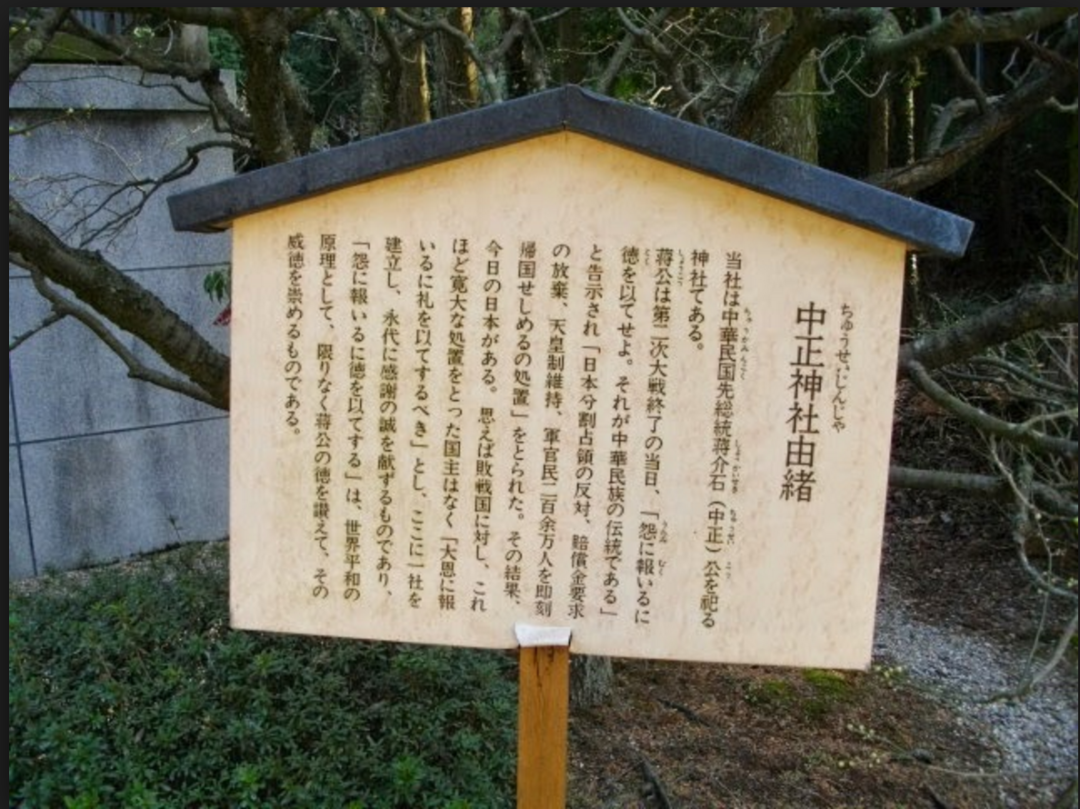 ちゅうせいじんじゃ
中正神社由緒
当社は中華民国先総統蒋介石（中正）公を祀る
神社である。
蒋公は第二次大戦終了の当日、「怨に報いるに
徳を以てせよ。それが中華民族の伝統である」
と告示され「日本分割占領の反対、賠償金要求
の放棄、天皇制維持、軍官民二百余万人を即刻
帰国せしめるの処置」をとられた。その結果、
今日の日本がある。思えば敗戦国に対し、これ
ほど寛大な処置をとった国主はなく「大恩に報
いるに礼を以てするべき」とし、ここに一社を
建立し、永代に感謝の誠を献ずるものであり、
「怨に報いるに徳を以てする」は、世界平和の
原理として、限りなく蒋公の徳を讃えて、その
威徳を崇めるものである。